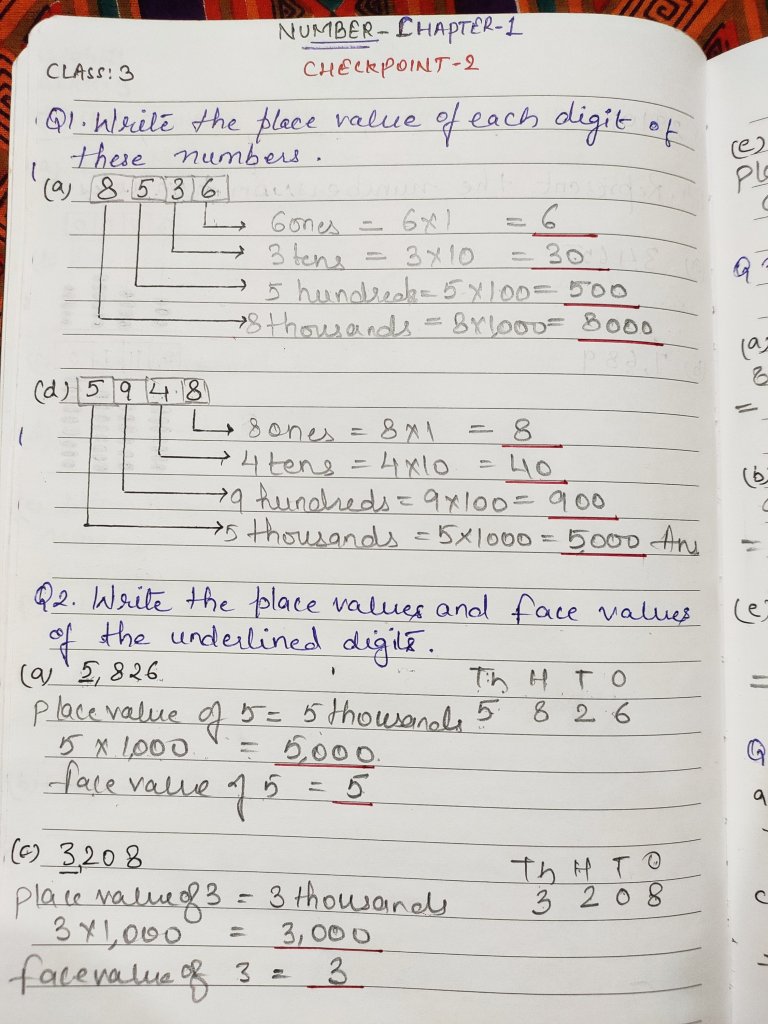 NUMBER-CHAPTER-1
CLASS: 3
CHECKPOINT-2
Q1. Write the place value of each digit of
these numbers.
(a) 8 5 3 6
6 ones = 6×1 = 6
3 tens = 3×10 = 30
5 hundreds = 5×100 = 500
8 thousands = 8×1,000 = 8000
(d) 5 9 4 8
8 ones = 8×1 = 8
4 tens = 4×10 = 40
9 hundreds = 9×100 = 900
5 thousands = 5×1000 = 5000 Ans
Q2. Write the place values and face values
of the underlined digits.
(a) 5,826. Th H T O
Place value of 5 = 5 thousands 5 8 2 6
5 × 1,000 = 5,000.
face value of 5 = 5
(c) 3,208 Th H T O
place value of 3 = 3 thousands 3 2 0 8
3×1,000 = 3,000
face value of 3 = 3
(e)
Q
(a)
8
=
(b)
=
(e)
=
Q
a
c